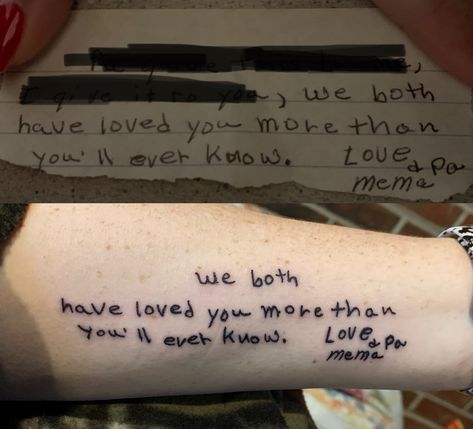 I give it to you, we both
have loved you more than
you'll ever know. Love
& Pa
mema
we both
have loved you more than
you'll ever know. Love
& Pa
mema